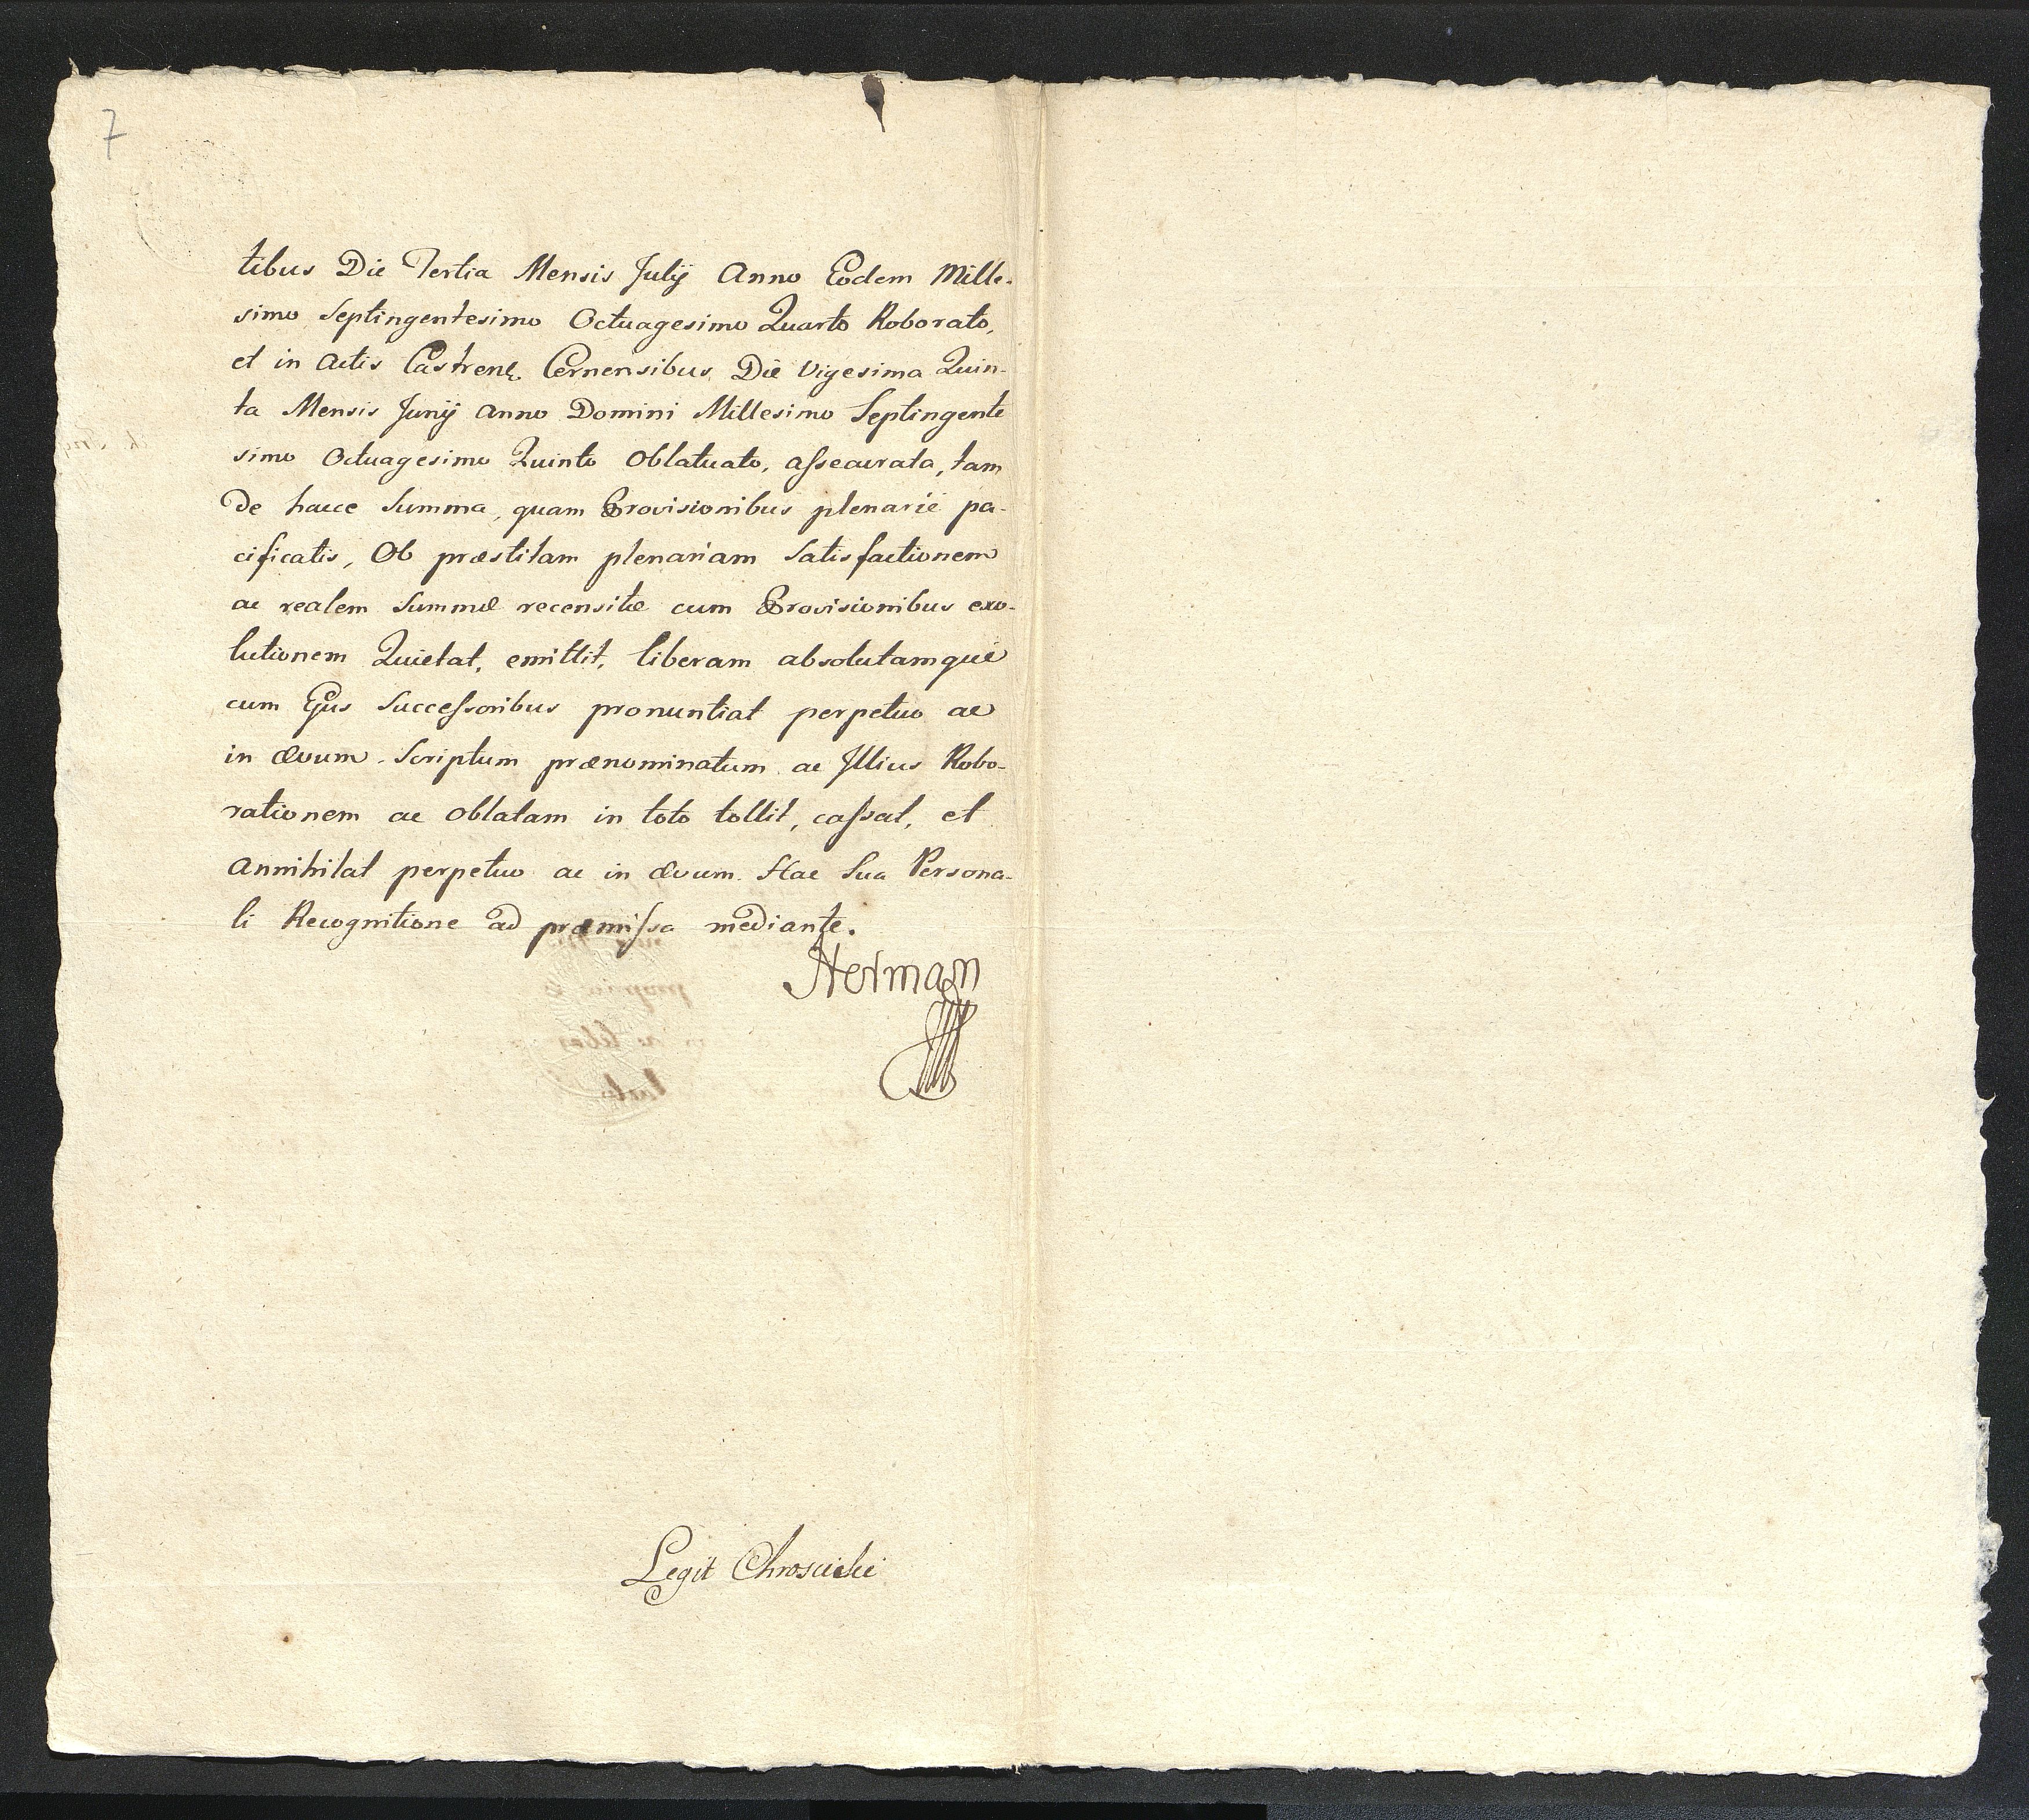 7
tibus Die Tertia Mensis Julij Anno Eodem Mille-
simo Septingentesimo Octuagesimo Quarto Roborato,
et in Actis Castren. Cernensibus Die Vigesima Quin-
ta Mensis Junij Anno Domini Millesimo Septingente
simo Octuagesimo Quinto Oblatuato, assecurata, tam
De hacce Summa, quam Provisionibus plenarie pa-
cificatis, Ob præstitam plenariam Satisfactionem
ac realem Summæ recensitæ cum Provisionibus exo-
lutionem Quietat, emittit, liberam absolutamque
cum Ejus Successoribus pronuntiat perpetuo ac
in ævum. Scriptum prænominatum ac Illius Robo-
rationem ac Oblatam in toto tollit, cassat, et
Annihilat perpetuo ac in ævum. Hac Sua Persona-
li Recognitione ad præmissa mediante.
Herman
Legit Chroscicki